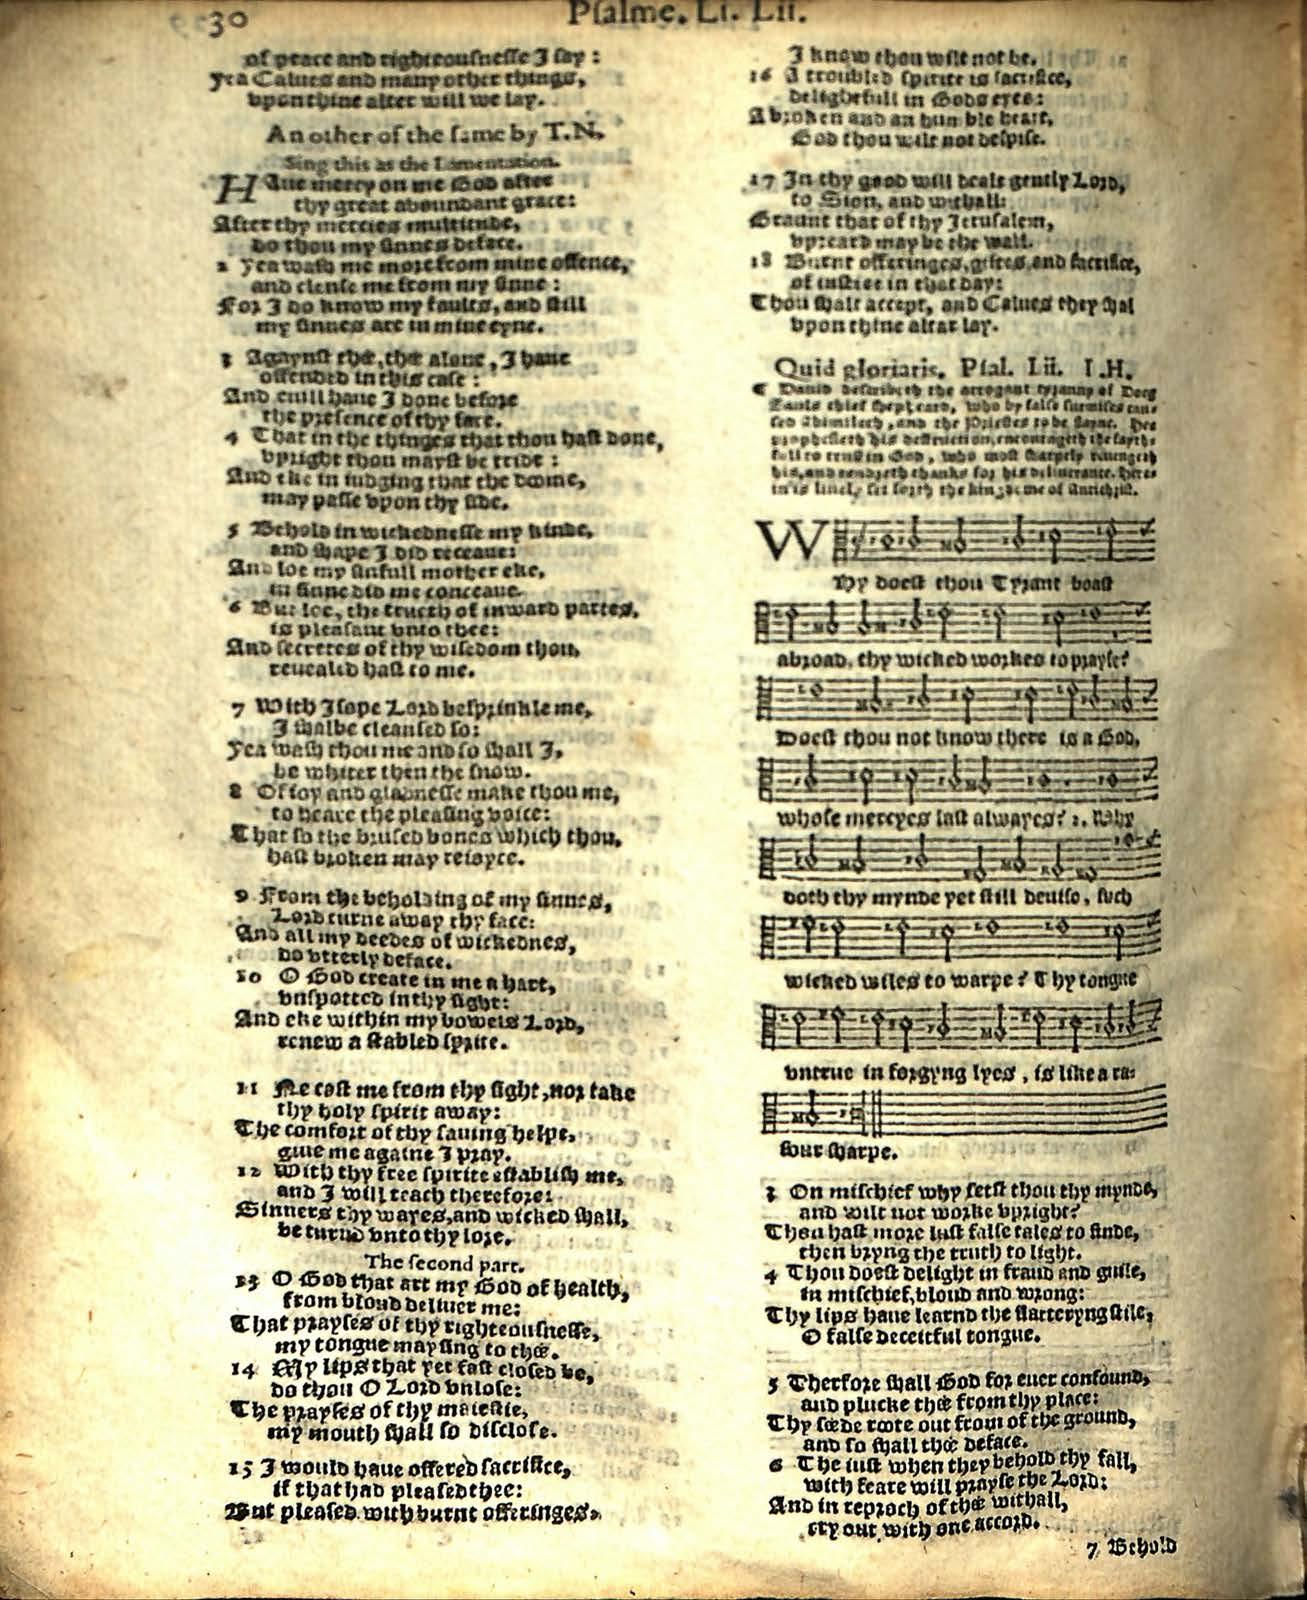 30
Psalme. Li. Lii.
of peace and righteousnesse I say:
yea Calues and many other things,
vpon thine alter will we lay.
An other of the same by T.N.
Sing this as the Lamentation.
HAue mercy on me God after
thy great aboundant grace:
After thy mercies multitude,
do thou my sinnes deface.
2 Yea wash me more from mine offence,
and clense me from my sinne:
For I do know my faults, and still
my sinnes are in mine eyne.
3 Agaynst thee, thee alone, I haue
offended in this case:
And euill haue I done before
the presence of thy face.
4 That in the thinges that thou hast done,
vpright thou mayst be tride:
And eke in iudging that the doome,
may passe vpon thy side.
5 Behold in wickednesse my kinde,
and shape I did receaue:
And loe my sinfull mother eke,
in sinne did me conceaue.
6 But loe, the trueth of inward partes,
is pleasant vnto thee:
And secretes of thy wisedom thou,
reuealed hast to me.
7 With Isope Lord besprinkle me,
I shalbe cleansed so:
Yea wash thou me and so shall I,
be whiter then the snow.
8 Of ioy and gladnesse make thou me,
to heare the pleasing voice:
That so the bruised bones which thou,
hast broken may reioyce.
9 From the beholding of my sinnes,
Lord turne away thy face:
And all my deedes of wickednes,
do vtterly deface.
10 O God create in me a hart,
vnspotted in thy sight:
And eke within my bowels Lord,
renew a stabled sprite.
11 Ne cast me from thy sight, nor take
thy holy spirit away:
The comfort of thy sauing helpe,
giue me againe I pray.
12 With thy free spirite establish me,
and I will teach therefore:
Sinners thy wayes, and wicked shall,
be turnd vnto thy lore.
The second part.
13 O God that art my God of health,
from bloud deliuer me:
That prayses of thy righteousnesse,
my tongue may sing to thee.
14 My lips that yet fast closed be,
do thou O Lord vnlose:
The prayses of thy maiestie,
my mouth shall so disclose.
15 I would haue offered sacrifice,
if that had pleased thee:
But pleased with burnt offeringes,
I know thou wilt not be.
16 A troubled spirite is sacrifice,
delightfull in Gods eyes:
A broken and an humble heart,
God thou wilt not despise.
17 In thy good will deale gently Lord,
to Sion, and withall:
Graunt that of thy Jerusalem,
vpreard may be the wall.
18 Burnt offeringes, giftes, and sacrifice,
of iustice in that day:
Thou shalt accept, and Calues they shal
vpon thine altar lay.
Quid gloriaris. Psal. Lii. I.H.
¶ Dauid describeth the arrogant tyranny of Doeg
Sauls chief shepheard, who by false surmises cau-
sed Ahimilech, and the Priestes to be slayne. Dauid
prophesieth his destruction, encourageth the fayth-
full to trust in God, who most sharpely reuengeth
his, and rendreth thanks for his deliuerance. Here-
in is liuely set forth the kingdome of Antichrist.
WHy doest thou Tyrant boast
abroad, thy wicked workes to prayse?
Doest thou not know there is a God,
whose mercyes last alwayes? 2. Why
doth thy mynde yet still deuise, such
wicked wiles to warpe? Thy tongue
vntrue in forgyng lyes, is like a ra-
sour sharpe.
3 On mischief why setst thou thy mynde,
and wilt not worke vpright?
Thou hast more lust false tales to finde,
then bryng the truth to light.
4 Thou doest delight in fraud and guile,
in mischief, bloud and wrong:
Thy lips haue learnd the flatteryng stile,
O false deceitful tongue.
5 Therfore shall God for euer confound,
and plucke thee from thy place:
Thy seede roote out from of the ground,
and so shall thee deface.
6 The iust when they behold thy fall,
with feare will prayse the Lord:
And in reproch of thee withall,
cry out with one accord.
7 Behold